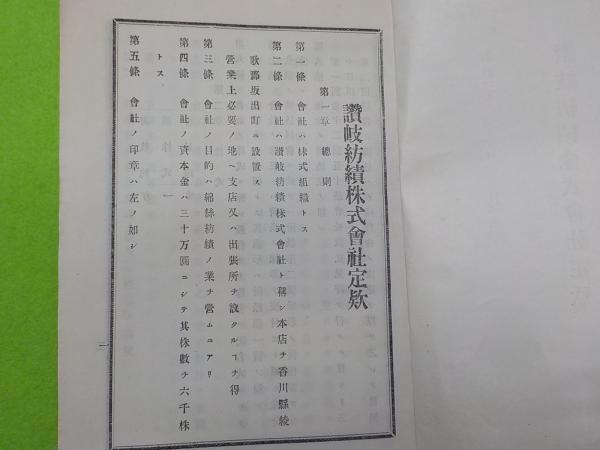 讃岐紡績株式會社定欵
第一章 總則
第一條 會社ハ株式組織トス
第二條 會社ハ讃岐紡績株式會社ト稱シ本店ヲ香川縣綾
歌郡坂出町ニ設置ス
營業上必要ノ地ヘ支店又ハ出張所ヲ設クルヿヲ得
第三條 會社ノ目的ハ綿絲紡績ノ業ヲ營ムニアリ
第四條 會社ノ資本金ハ三十万圓ニシテ其株數ヲ六千株
トス
第五條 會社ノ印章ハ左ノ如シ
一